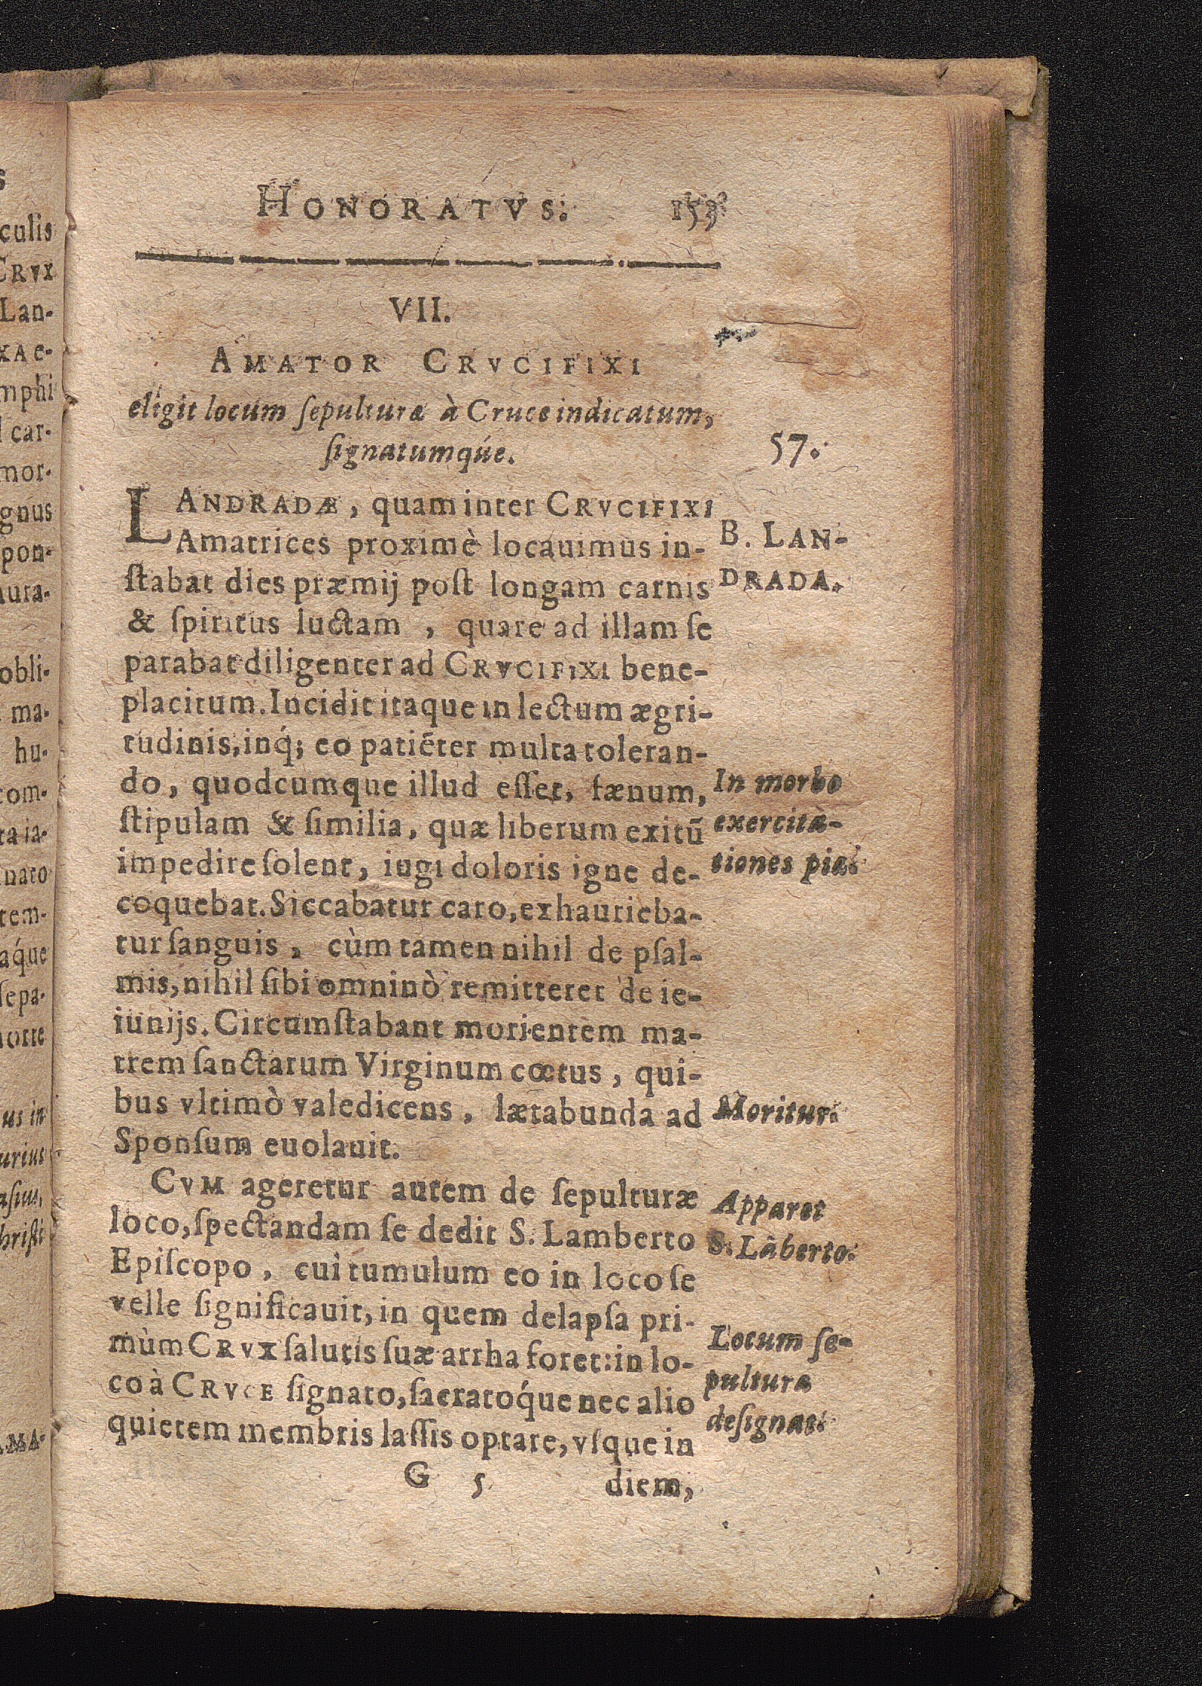 HONORATVS. 153
VII.
AMATOR CRVCIFIXI
eligit locum ſepulturæ à Cruce indicatum,
ſignatumq́ue.
57.
LANDRADÆ, quam inter CRVCIFIXI
Amatrices proximè locauimus in-
ſtabat dies præmij poſt longam carnis
& ſpiritus luctam , quare ad illam ſe
parabat diligenter ad CRVCIFIXI bene-
placitum. Incidit itaque in lectum ægri-
tudinis, inq́; eo patiẽter multa toleran-
do, quodcumque illud eſſet, fænum,
ſtipulam & ſimilia, quæ liberum exitũ
impedire ſolent, iugi doloris igne de-
coquebat. Siccabatur caro, exhaurieba-
tur ſanguis, cùm tamen nihil de pſal-
mis, nihil ſibi omninò remitteret de ie-
iunijs. Circumſtabant morientem ma-
trem ſanctarum Virginum cœtus, qui-
bus vltimò valedicens, lætabunda ad
Sponſum euolauit.
CVM ageretur autem de ſepulturæ
loco, ſpectandam ſe dedit S. Lamberto
Epiſcopo, cui tumulum eo in loco ſe
velle ſignificauit, in quem delapſa pri-
mùm CRVX ſalutis ſuæ arrha foret: in lo-
co à CRVCE ſignato, ſacratoq́ue nec alio
quietem membris laſſis optare, vſque in
G 5 diem,
B. LAN-
DRADA.
In morbo
exercita-
tiones piæ.
Moritur.
Apparet
S. Lãberto.
Locum ſe-
pulturæ
deſignat.
culis
CRVX
Lan-
XA e-
mphi
car-
mor-
gnus
pon-
aura-
obli-
ma-
hu-
com-
ta ia-
nato
tem-
aq́ue
ſepa-
orte
us in
urius
aſius,
hriſti
AMA-